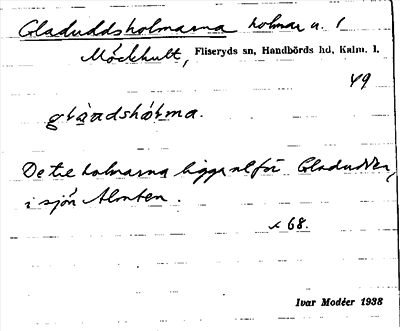 Gladuddsholmarna holmar u. 1
Möckhult, Fliseryds sn, Handbörds hd, Kalm. l.
49
De tre holmarna ligga nl för Gladudden,
i sjön Almten.
× 68.
Ivar Modéer 1938